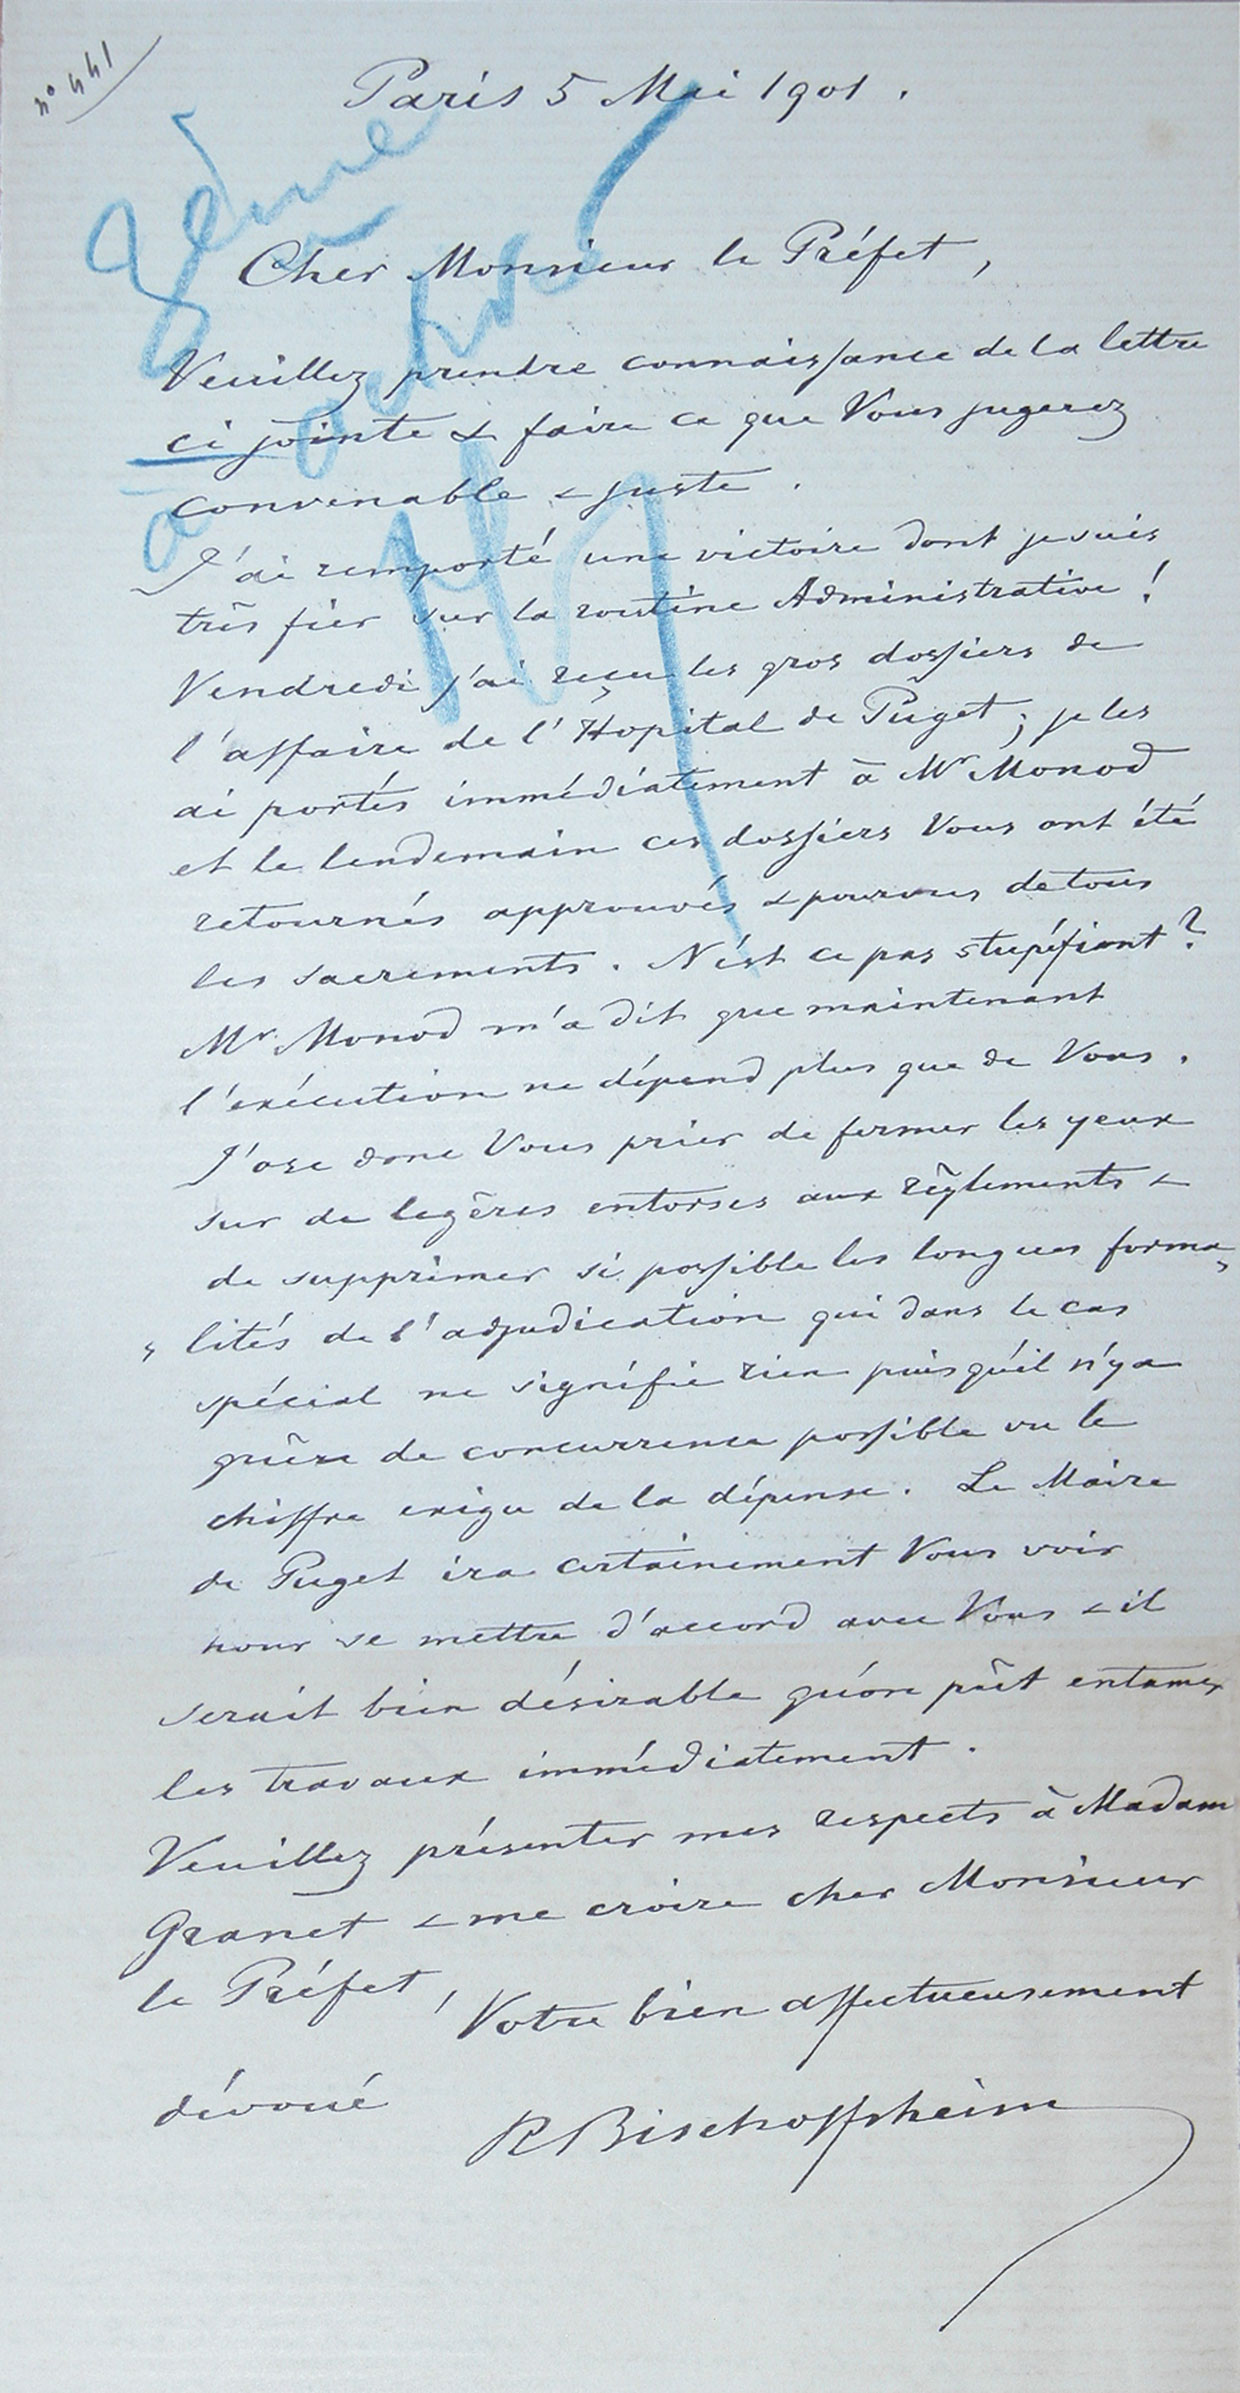 n° 441
Paris 5 Mai 1901.
Cher Monsieur le Préfet,
Veuillez prendre connaissance de la lettre
ci jointe & faire ce que Vous jugerez
convenable & juste.
J'ai remporté une victoire dont je suis
três fier sur la routine Administrative !
Vendredi j'ai reçu les gros dossiers de
l'affaire de l'Hopital de Puget ; je les
ai portés immédiatement à Mr Monod
et le lendemain ces dossiers Vous ont été
retournés approuvés & pourvus de tous
les sacrements. N'ést ce pas stupéfiant ?
Mr Monod m'a dit que maintenant
l'exécution ne dépend plus que de Vous.
J'ose donc Vous prier de fermer les yeux
sur de legêres entorses aux rêglements &
de supprimer si possible les longues forma„
„lités de l'adjudication qui dans le cas
spécial ne signifie rien puisqu'il n'y a
guêre de concurrence possible vu le
chiffre exigu de la dépense. Le Maire
de Puget ira certainement Vous voir
pour se mettre d'accord avec Vous & il
serait bien désirable qu'on pût entamer
les travaux immédiatement.
Veuillez présenter mes respects à Madam
Granet & me croire cher Monsieur
le Préfet, Votre bien affectueusement
dévoué
R Bischoffsheim